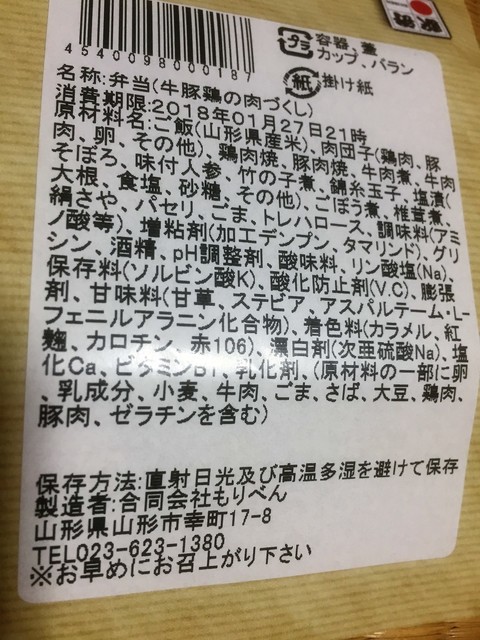 4540098000187
プラ
容器、蓋
カップ、バラン
紙
掛け紙
名称:弁当(牛豚鶏の肉づくし)
消費期限:2018年01月27日21時
原材料名:ご飯(山形県産米)、肉団子(鶏肉、豚
肉、卵、その他)、鶏肉焼、豚肉焼、牛肉煮、牛肉
そぼろ、味付人参、竹の子煮、錦糸玉子、塩漬(
大根、食塩、砂糖、その他)、ごぼう煮、椎茸煮、
絹さや、パセリ、ごま、トレハロース、調味料(アミ
ノ酸等)、増粘剤(加工デンプン、タマリンド)、グリ
シン、酒精、pH調整剤、酸味料、リン酸塩(Na)、
保存料(ソルビン酸K)、酸化防止剤(V.C)、膨張
剤、甘味料(甘草、ステビア、アスパルテーム・L-
フェニルアラニン化合物)、着色料(カラメル、紅
麹、カロチン、赤106)、漂白剤(次亜硫酸Na)、塩
化Ca、ビタミンB1、乳化剤、(原材料の一部に卵
、乳成分、小麦、牛肉、ごま、さば、大豆、鶏肉、
豚肉、ゼラチンを含む)
保存方法:直射日光及び高温多湿を避けて保存
製造者:合同会社もりべん
山形県山形市幸町17-8
TEL023-623-1380
※お早めにお召上がり下さい